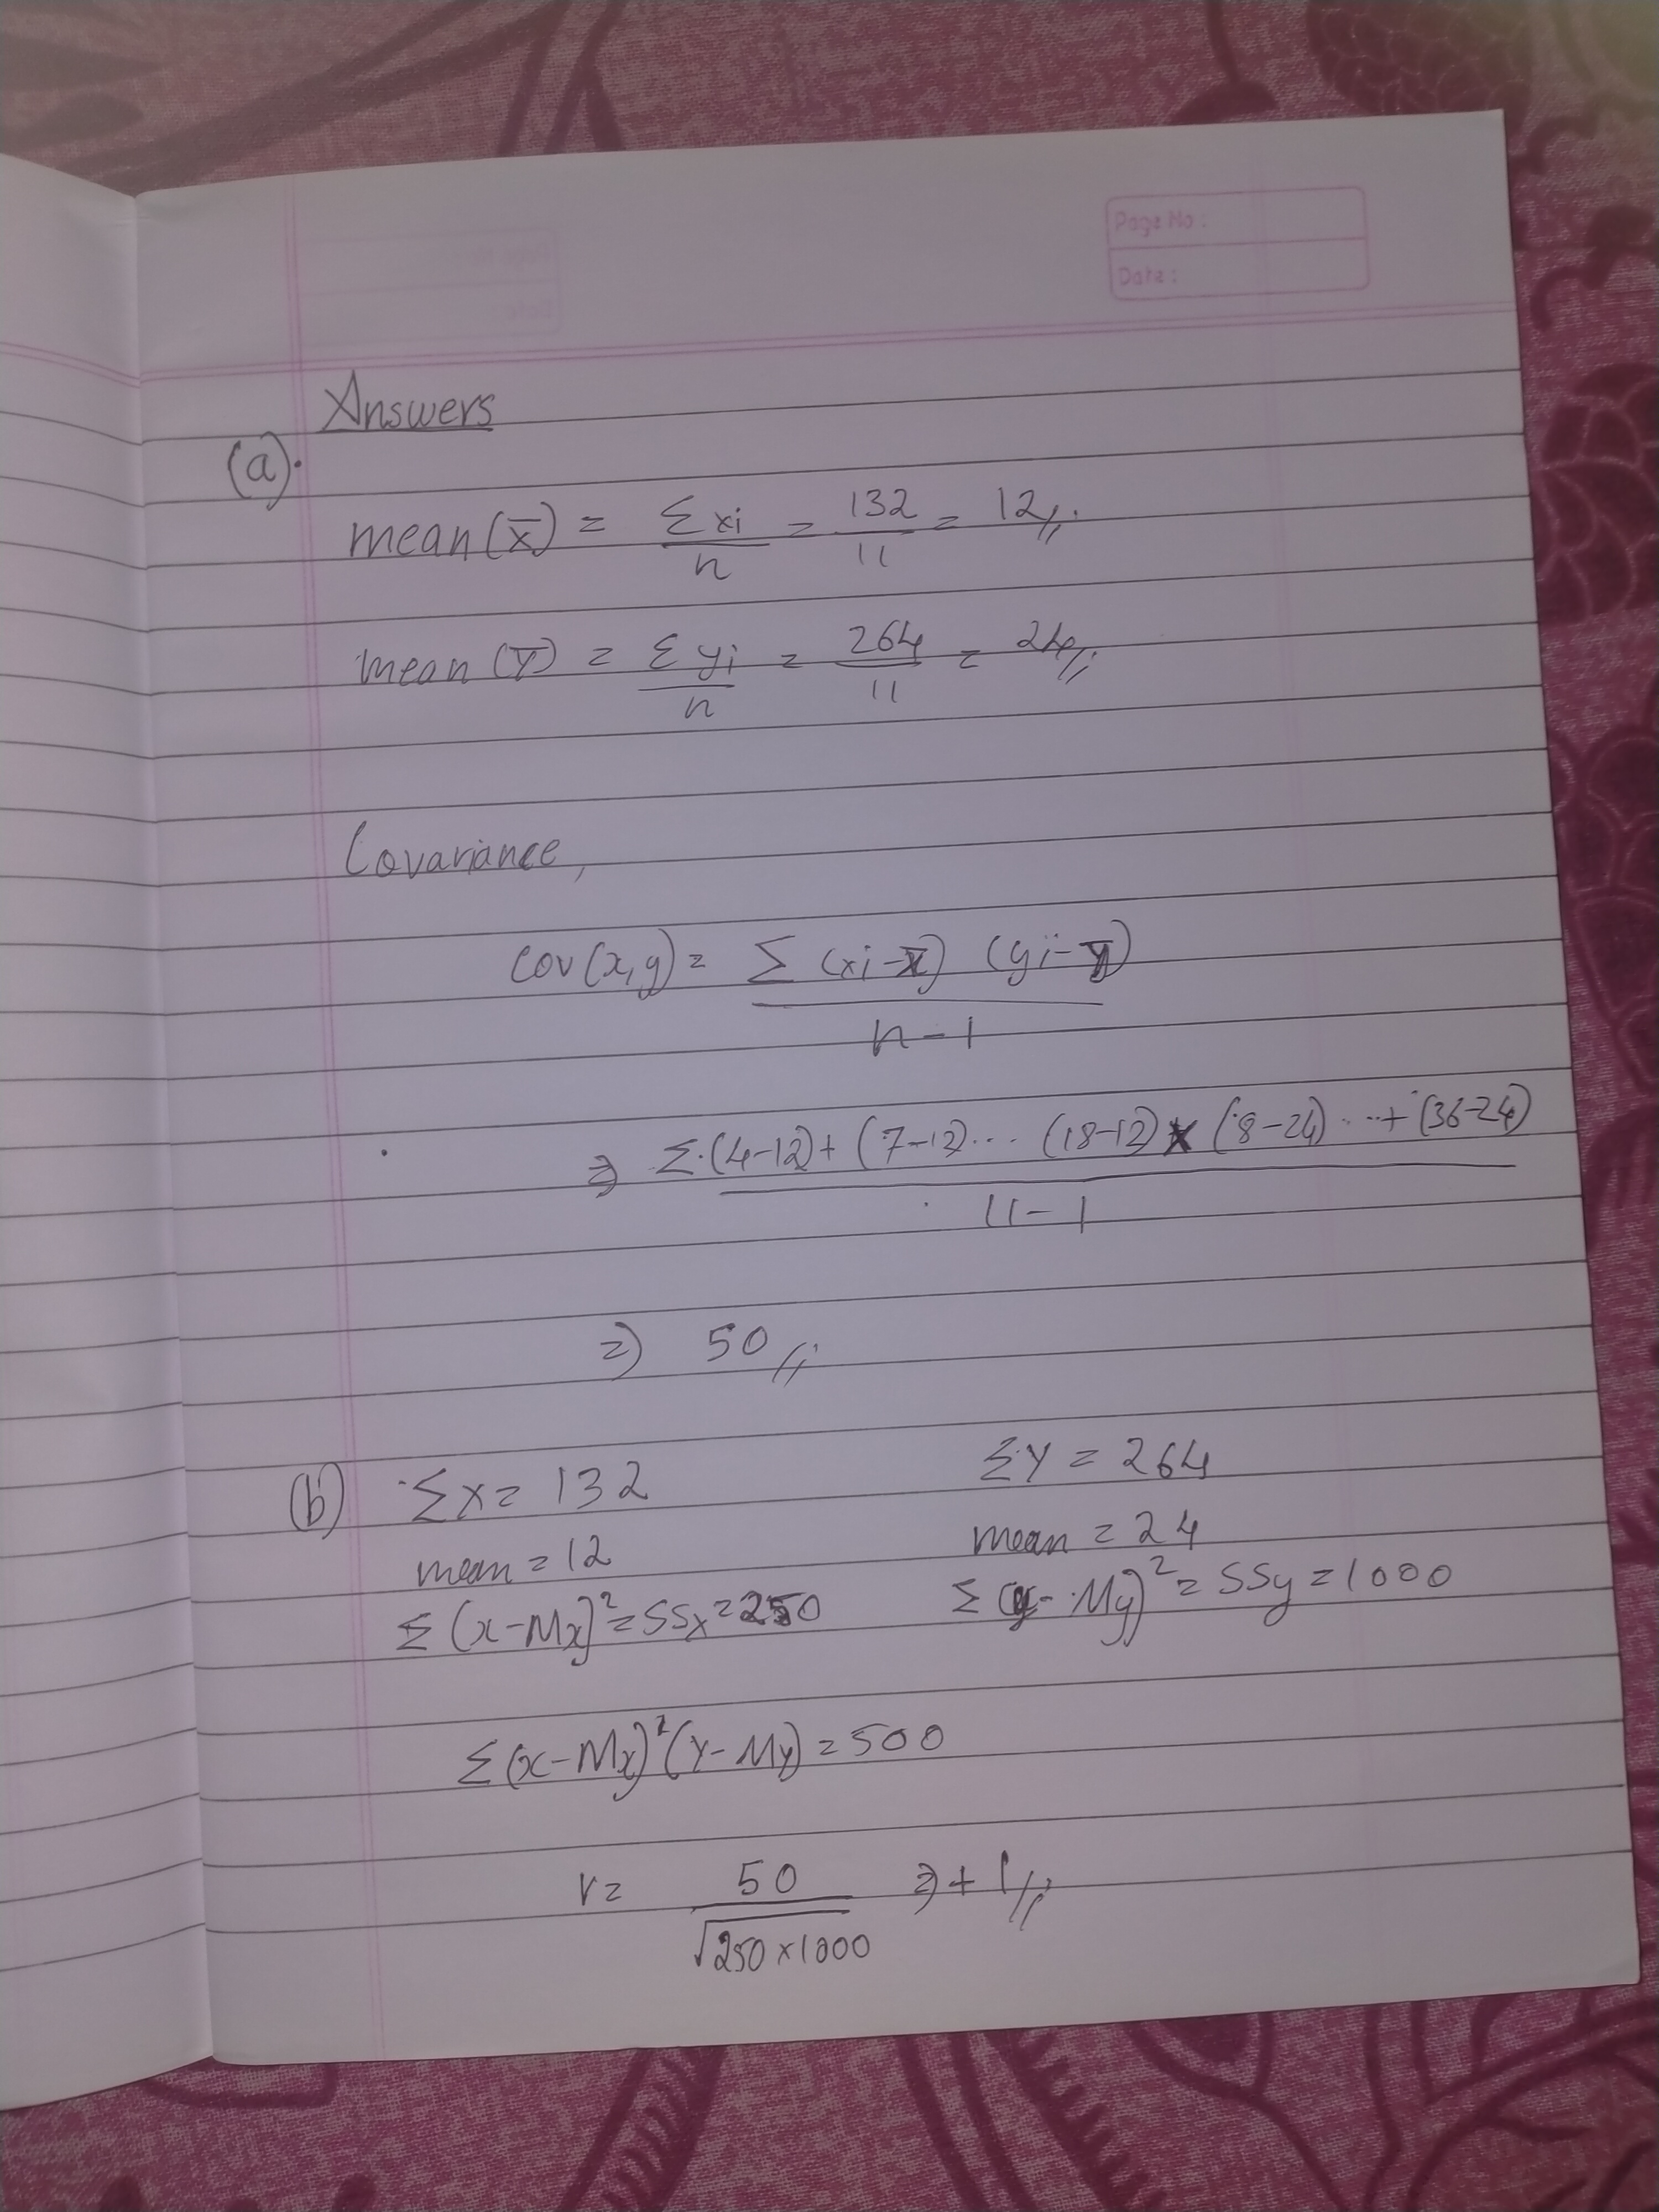 Page No:
Date:
Answers
(a).
mean (x̄) = Σxi/n = 132/11 = 12//.
mean (ȳ) = Σyi/n = 264/11 = 24//.
Covariance,
cov(x,y) = Σ (xi-x̄) (yi-ȳ) / n-1
⇒ Σ.(4-12)+ (7-12)... (18-12) x (8-24) ...+ (36-24) / 11-1
⇒ 50//.
(b) Σx = 132 ΣY = 264
mean = 12 mean = 24
Σ(x-Mx)² = SSx = 250 Σ(y-My)² = SSy = 1000
Σ(x-Mx)²(Y-My) = 500
r = 50 / √250x1000 ⇒ +1//.